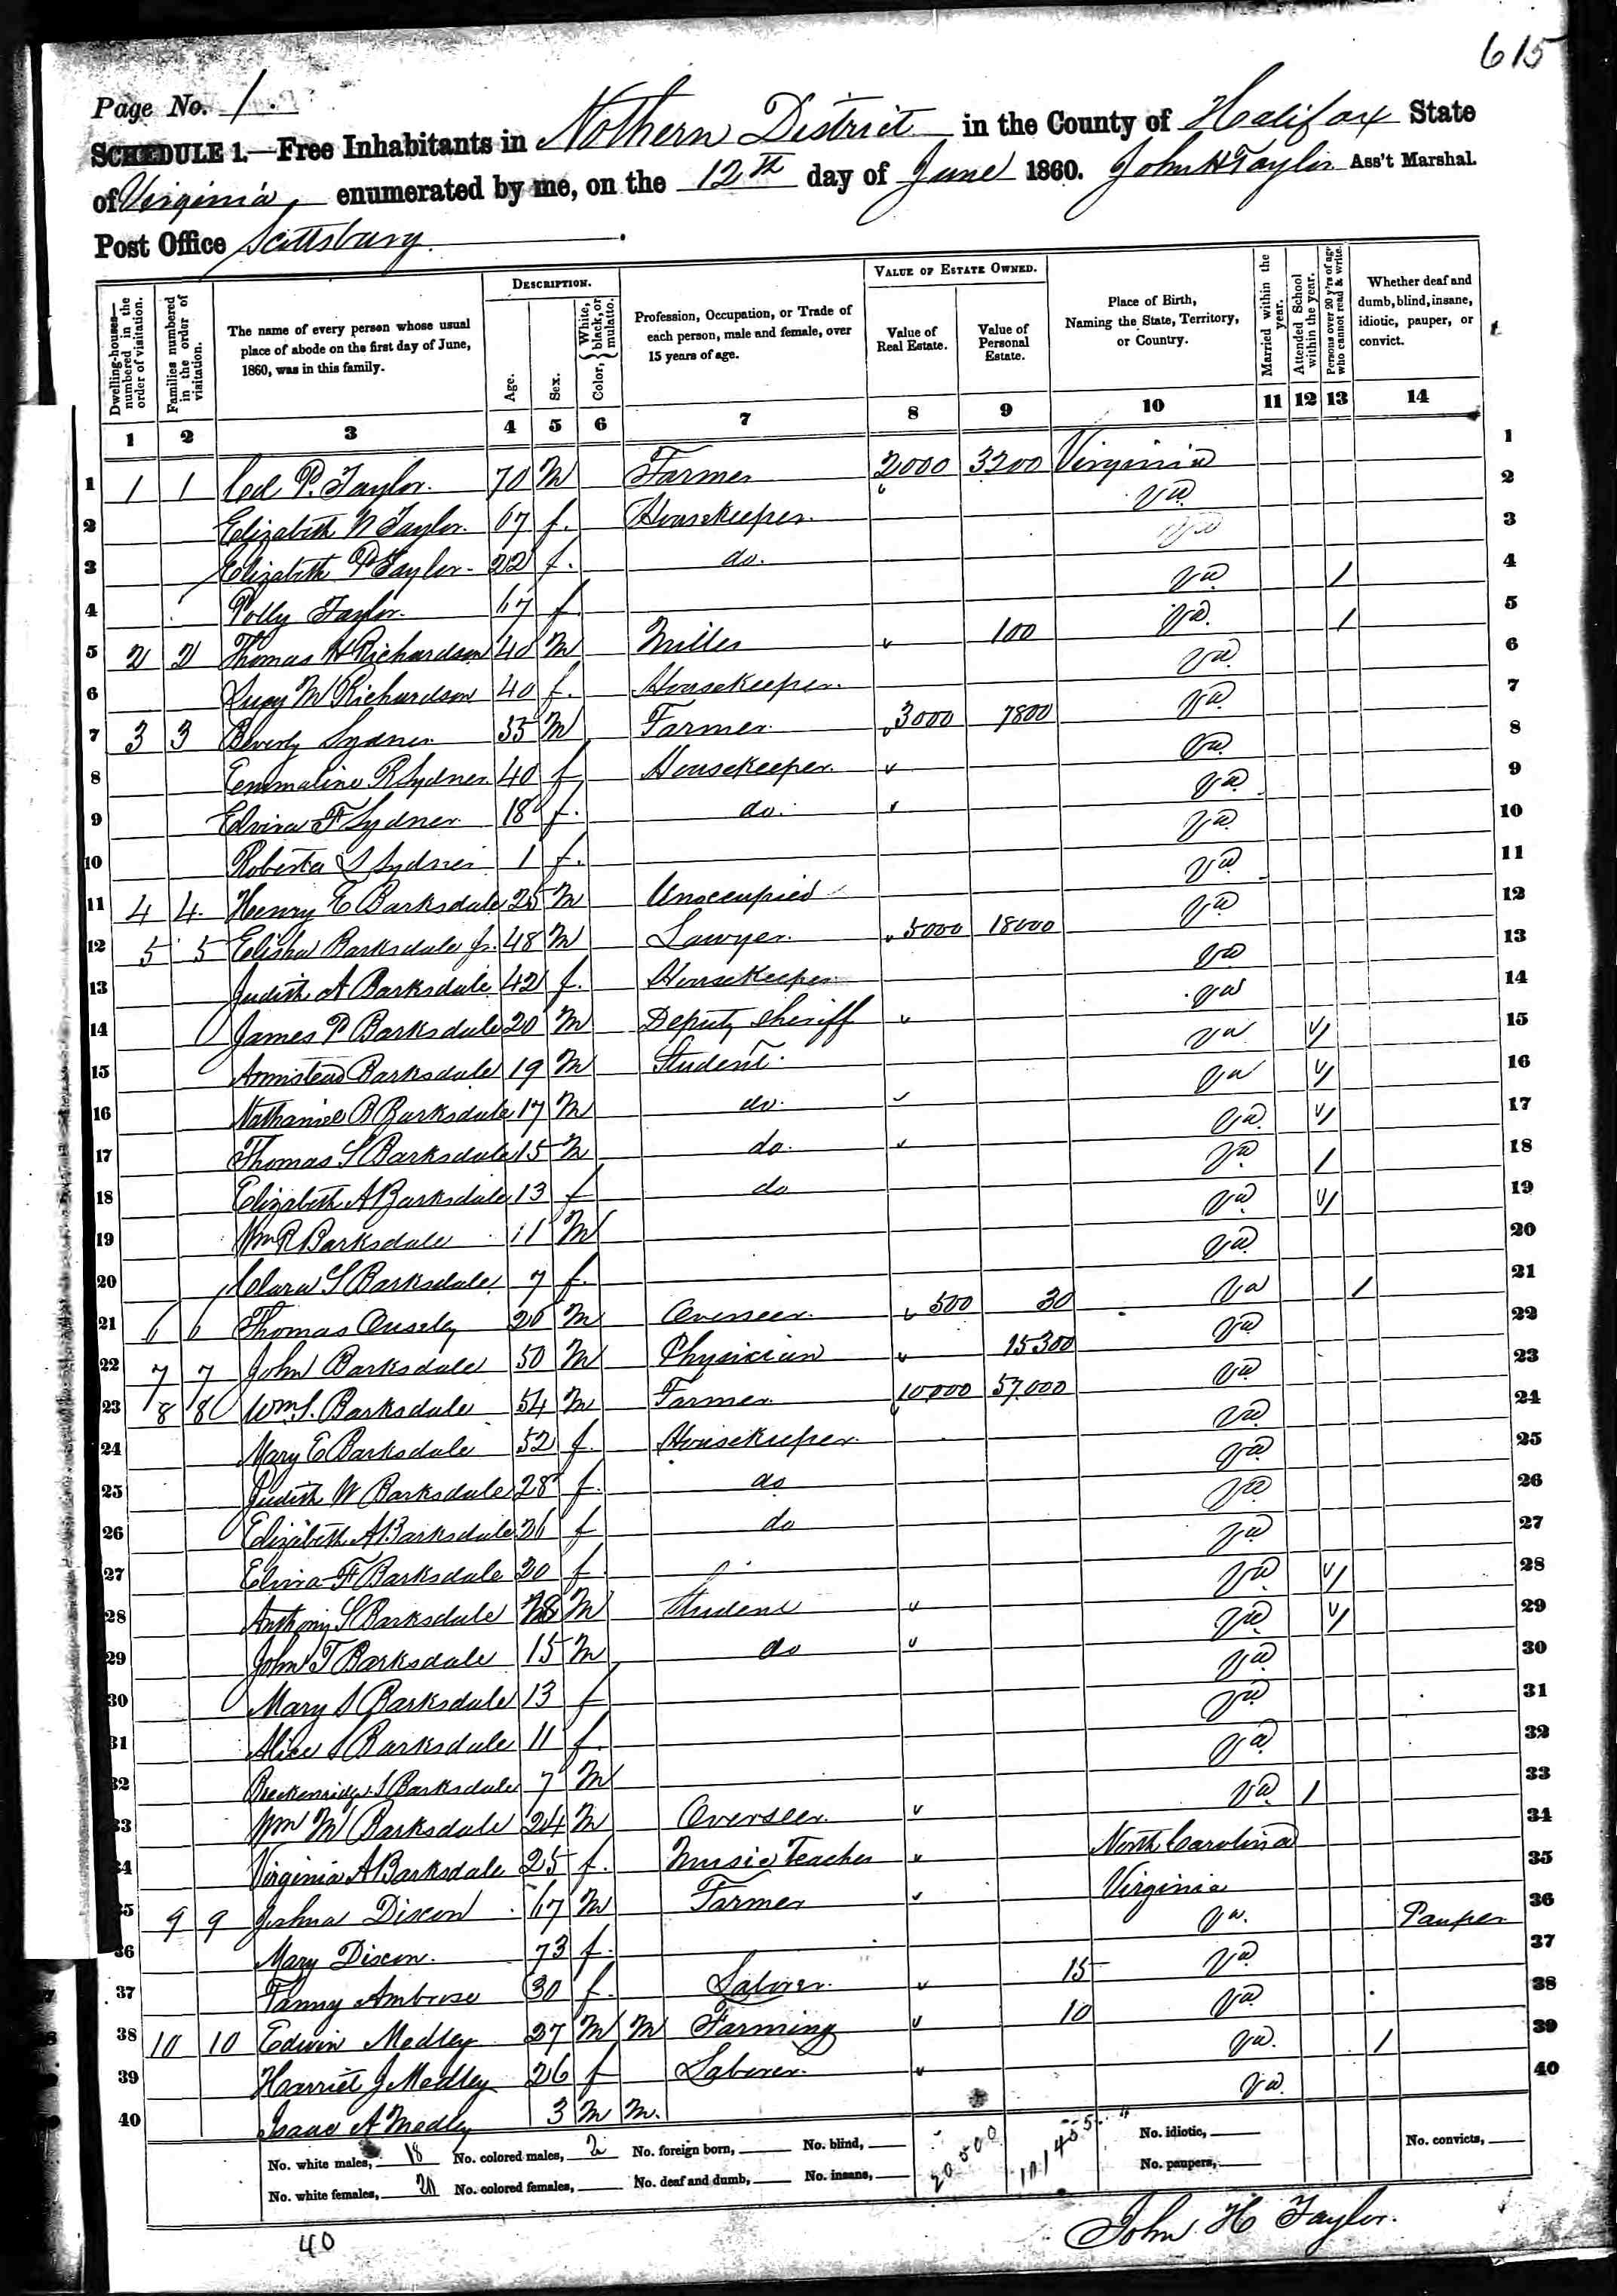 615
Page No. 1.
SCHEDULE 1.—Free Inhabitants in Nothern District in the County of Halifax State
of Virginia enumerated by me, on the 12th day of June 1860. John H Taylor Ass't Marshal.
Post Office Scottsburg.
Dwelling-houses—numbered in the order of visitation.
Families numbered in the order of visitation.
The name of every person whose usual place of abode on the first day of June, 1860, was in this family.
DESCRIPTION.
Age.
Sex.
Color, White, black, or mulatto.
Profession, Occupation, or Trade of each person, male and female, over 15 years of age.
VALUE OF ESTATE OWNED.
Value of Real Estate.
Value of Personal Estate.
Place of Birth, Naming the State, Territory, or Country.
Married within the year.
Attended School within the year.
Persons over 20 y'rs of age who cannot read & write.
Whether deaf and dumb, blind, insane, idiotic, pauper, or convict.
1 2 3 4 5 6 7 8 9 10 11 12 13 14
1 1 1 P. Taylor. 70 M Farmer 2000 3200 Virginia 1
2 Elizabeth N Taylor. 67 f. Housekeeper. Va 2
3 Elizabeth P Taylor. 22 f. do. Va 3
4 Polly Taylor. 67 f Va / 4
5 2 2 Thomas H Richardson 40 M Miller 100 Va. / 5
6 Lucy M Richardson 40 f. Housekeeper. Va 6
7 3 3 Beverly Sydnor 55 M Farmer 3000 7800 Va 7
8 Emmaline R Sydnor 40 f Housekeeper. Va. 8
9 Elvira F Sydnor 18 f. do. Va. 9
10 Roberta S Sydnor 1 f. Va. 10
11 4 4. Henry E Barksdale 25 M Unoccupied Va 11
12 5 5 Elisha Barksdale Jr. 48 M Lawyer. 5000 18000 Va 12
13 Judith A Barksdale 42 f. Housekeeper Va 13
14 James P Barksdale 20 M Deputy Sheriff Va 14
15 Armistead Barksdale 19 M Student. Va / 15
16 Nathaniel B Barksdale 17 M do. Va / 16
17 Thomas S Barksdale 15 M do. Va. / 17
18 Elizabeth A Barksdale 13 f do Va / 18
19 Wm R Barksdale 11 M Va / 19
20 Clara S Barksdale. 7 f. Va. 20
21 6 6 Thomas Ousley 26 M Overseer. 500 30 Va / 21
22 7 7 John Barksdale 50 M Physician 15300 Va 22
23 8 8 Wm. S. Barksdale 54 M Farmer 10000 57,000 Va 23
24 Mary E Barksdale 52 f. Housekeeper. Va 24
25 Judith W Barksdale 28 f. do Va 25
26 Elizabeth A Barksdale 26 f do Va 26
27 Elvira F Barksdale 20 f. Va 27
28 Anthony S Barksdale M Student Va / 28
29 John T Barksdale 15 M do Va. / 29
30 Mary S Barksdale 13 f Va 30
31 Alice S Barksdale 11 f. Va 31
32 Breckenridge S Barksdale 7 M Va 32
33 Wm M Barksdale 24 M Overseer. Va / 33
34 Virginia A Barksdale 25 f. Music Teacher North Carolina 34
35 9 9 Joshua Dixon 67 M Farmer Virginia 35
36 Mary Dixon. 73 f. Va. Pauper 36
37 Fanny Ambrose 30 f. Laborer. 15 Va 37
38 10 10 Edwin Medley 27 M M Farming 10 Va 38
39 Harriet J Medley 26 f Laborer. Va. / 39
40 Isaac A Medley 3 M M. Va. 40
No. white males, 18 No. colored males, 2 No. foreign born, No. blind, 20500 101455 No. idiotic, No. convicts,
No. white females, 20 No. colored females, No. deaf and dumb, No. insane, No. paupers,
40
John H Taylor.